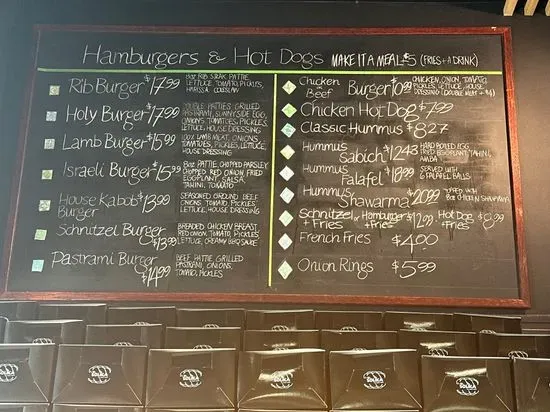 Hamburgers & Hot Dogs MAKE IT A MEAL $5 (FRIES + A DRINK)
Rib Burger $17.99
Bar RIB STEAK PATTIE
LETTUCE, TOMATO, PICKLES,
HARISSA COLESLAW
Holy Burger $17.99
DOUBLE PATTIES GRILLED
PASTRAMI, SUNNYSIDE EGG,
ONIONS, TOMATOES, PICKLES,
LETTUCE, HOUSE DRESSING
Lamb Burger $15.99
100% LAMB MEAT, ONIONS
TOMATOES, PICKLES, LETTUCE,
HOUSE DRESSING
Israeli Burger $15.99
Bar PATTIE, CHOPPED PARSLEY
CHOPPED RED ONION FRIED
EGGPLANT, SALSA,
TAHINI, TOMATO
House Kabob $13.99
Burger
SEASONED GROUND BEEF
ONIONS TOMATO PICKLES
LETTUCE, HOUSE DRESSING
Schnitzel Burger
$13.99
BREADED CHICKEN BREAST
RED ONION, TOMATO, PICKLES
LETTUCE, CREAMY BBQ SAUCE
Pastrami Burger
$14.99
BEEF PATTIE, GRILLED
PASTRAMI, ONIONS,
TOMATO, PICKLES
Chicken
or Beef Burger $10.99
CHICKEN, ONION, TOMATO,
PICKLES, LETTUCE, HOUSE
DRESSING (DOUBLE MEAT + $4)
Chicken Hot Dog $7.99
Classic Hummus $8.27
Hummus
Sabich $12.43
HARD BOILED EGG
FRIED EGGPLANT, TAHINI,
AMBA
Hummus
Falafel $18.99
SERVED WITH
6 FALAFEL BALLS
Hummus
Shawarma $20.99
TOPPED WITH
Bar CHICKEN SHAWARMA
Schnitzel or Hamburger $12.99 Hot Dog $8.99
+ Fries + Fries + Fries
French Fries $4.00
Onion Rings $5.99